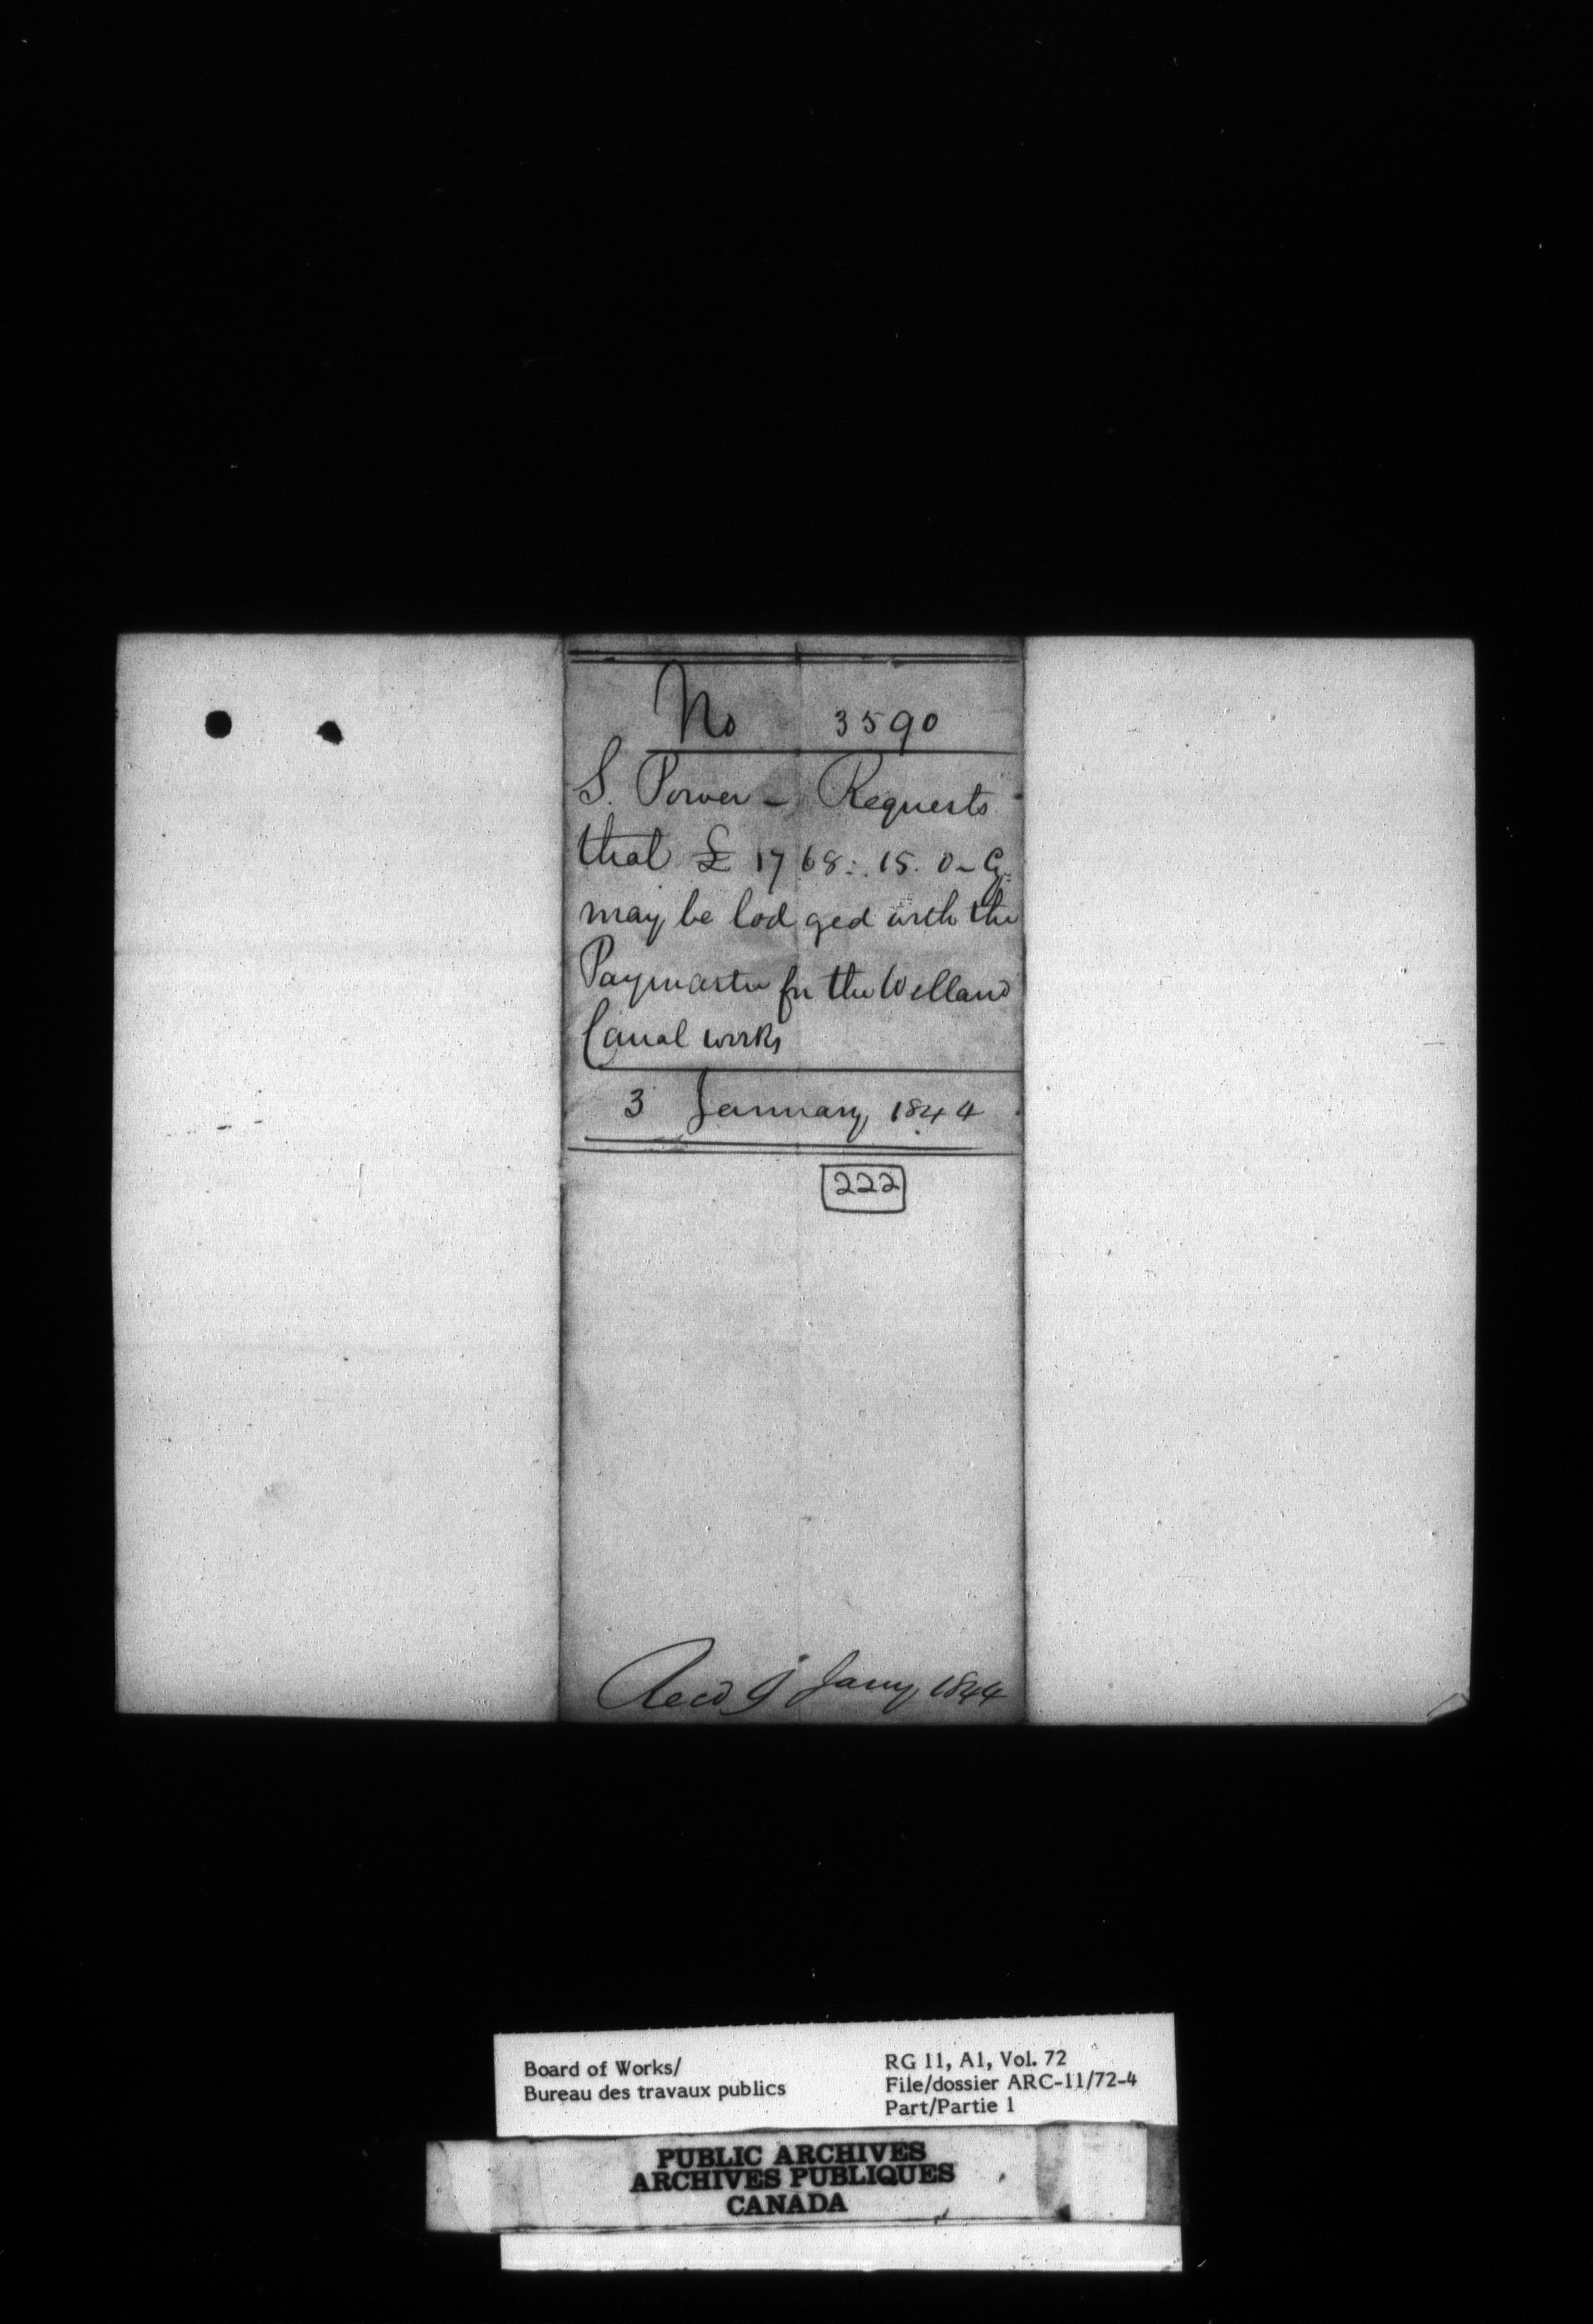 No 3590
S. Power - Requests
that £ 1768:.15.0 - Cy
may be lodged with the
Paymaster for the Welland
Canal works
3 January 1844
222
Recd 9 Jany 1844
Board of Works/
Bureau des travaux publics
RG 11, A1, Vol. 72
File/dossier ARC-11/72-4
Part/Partie 1
PUBLIC ARCHIVES
ARCHIVES PUBLIQUES
CANADA